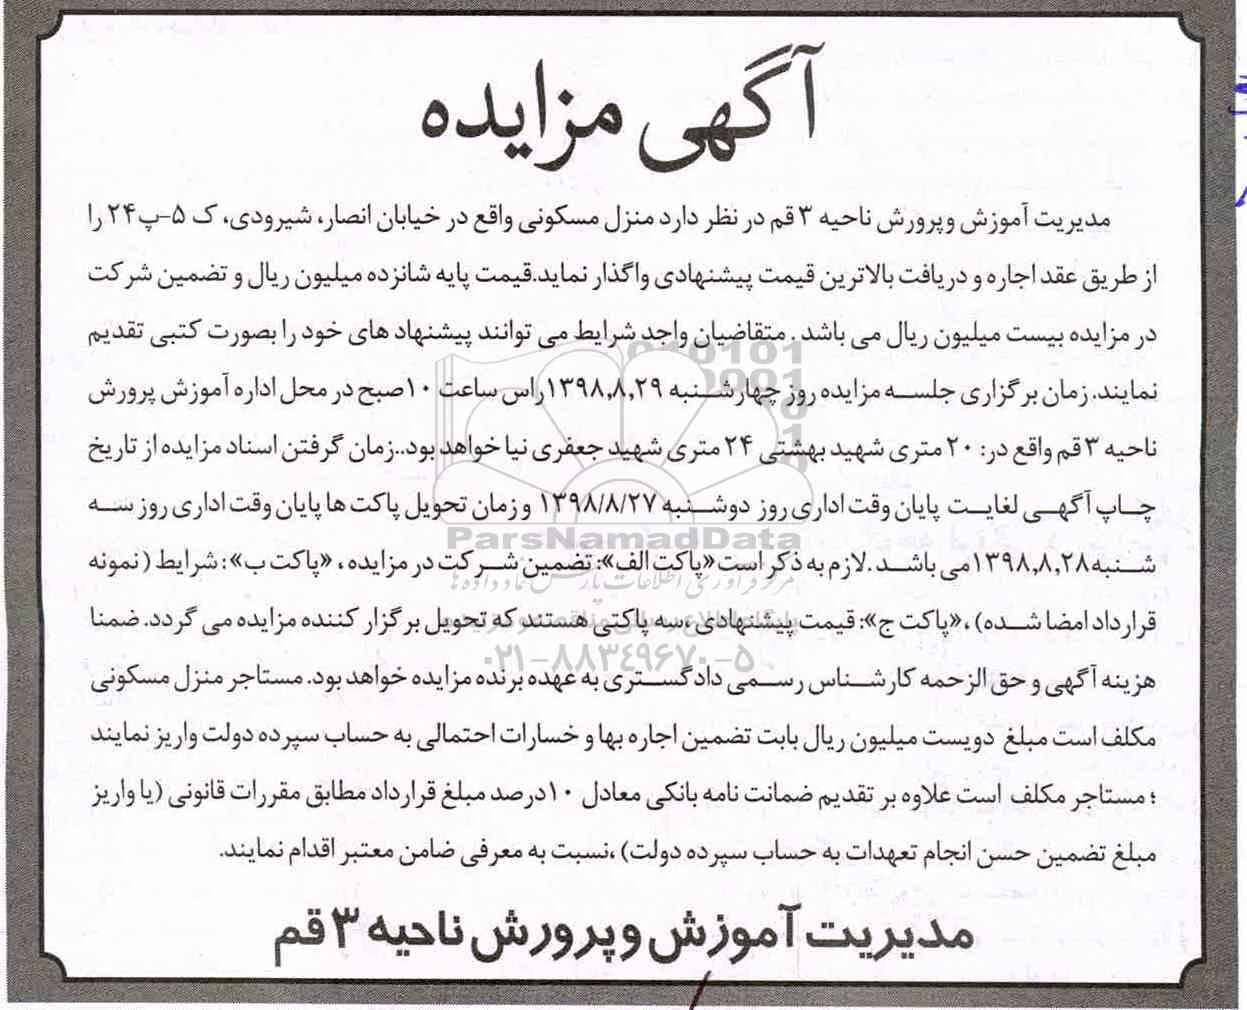 آگهی مزایده
مدیریت آموزش وپرورش ناحیه ۳ قم در نظر دارد منزل مسکونی واقع در خیابان انصار، شیرودی، ک ۵-پ۲۴ را
از طریق عقد اجاره و دریافت بالاترین قیمت پیشنهادی واگذار نماید.قیمت پایه شانزده میلیون ریال و تضمین شرکت
در مزایده بیست میلیون ریال می باشد . متقاضیان واجد شرایط می توانند پیشنهاد های خود را بصورت کتبی تقدیم
نمایند. زمان برگزاری جلسه مزایده روز چهارشنبه ۱۳۹۸,۸,۲۹راس ساعت ۱۰صبح در محل اداره آموزش پرورش
ناحیه ۳ قم واقع در: ۲۰ متری شهید بهشتی ۲۴ متری شهید جعفری نیا خواهد بود..زمان گرفتن اسناد مزایده از تاریخ
چاپ آگهی لغایت پایان وقت اداری روز دوشنبه ۱۳۹۸/۸/۲۷ و زمان تحویل پاکت ها پایان وقت اداری روز سه
شنبه۱۳۹۸,۸,۲۸می باشد .لازم به ذکر است«پاکت الف»: تضمین شرکت در مزایده ، «پاکت ب»: شرایط ( نمونه
قرارداد امضا شده) ،«پاکت ج»: قیمت پیشنهادی ،سه پاکتی هستند که تحویل برگزار کننده مزایده می گردد. ضمنا
هزینه آگهی و حق الزحمه کارشناس رسمی دادگستری به عهده برنده مزایده خواهد بود. مستاجر منزل مسکونی
مکلف است مبلغ دویست میلیون ریال بابت تضمین اجاره بها و خسارات احتمالی به حساب سپرده دولت واریز نمایند
؛ مستاجر مکلف است علاوه بر تقدیم ضمانت نامه بانکی معادل ۱۰درصد مبلغ قرارداد مطابق مقررات قانونی (یا واریز
مبلغ تضمین حسن انجام تعهدات به حساب سپرده دولت) ،نسبت به معرفی ضامن معتبر اقدام نمایند.
مدیریت آموزش و پرورش ناحیه ۳ قم
ParsNamadData
۰۲۱-۸۸۳۴۹۶۷۰-۵